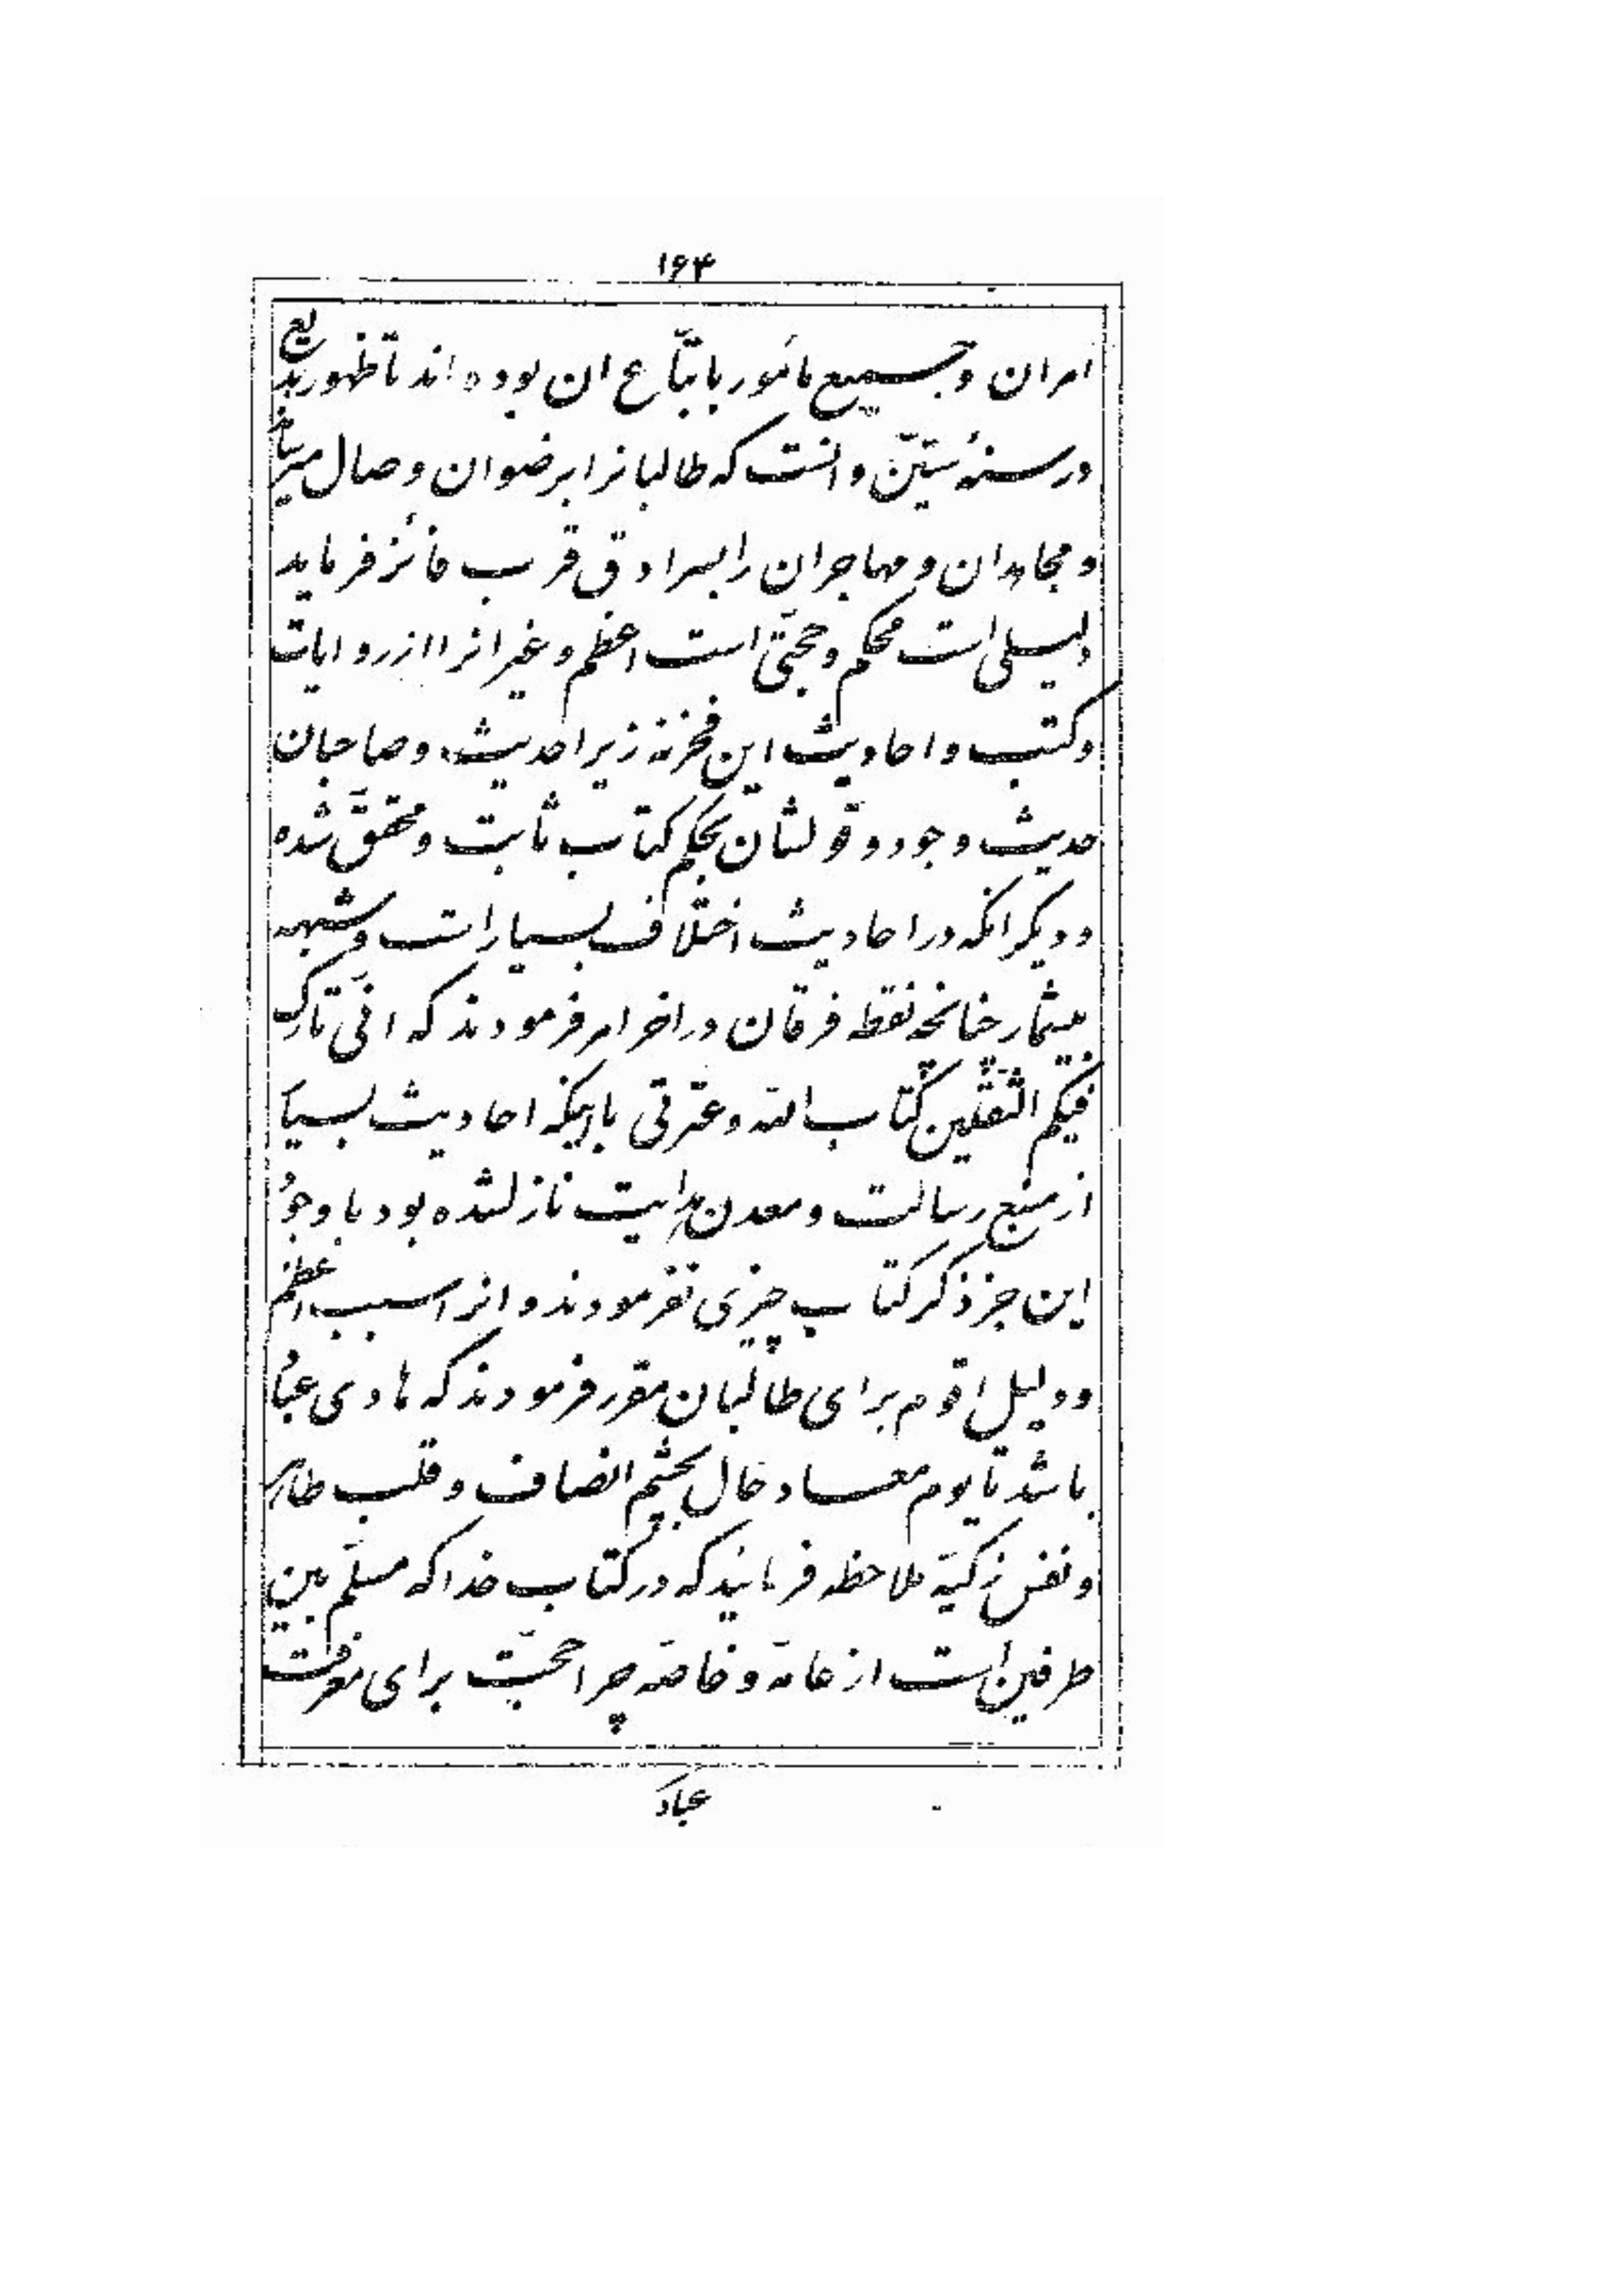 ۱۶۴
امران و جمیع مأمور باتّباع ان بوده‌اند تا ظهور بدیع
در سنهٔ ستّین و انست که طالبانرا برضوان وصال میرساند
و مجاهدان و مهاجران را بسرادق قرب فائز فرماید
دلیلی است محکم و حجّتی است اعظم و غیر انرا از روایات
و کتب و احادیث این فخر نه زیرا حدیث و صاحبان
حدیث وجود و قولشان بحکم کتاب ثابت و محقّق شده
و دیگر انکه در احادیث اختلاف بسیار است و شبهه
بیشمار چنانچه نقطه فرقان در اخر امر فرمودند که انّی تارک
فیکم الثّقلین کتاب الله و عترتی با اینکه احادیث بسیار
از منبع رسالت و معدن هدایت نازلشده بود با وجود
این جز ذکر کتاب چیزی نفرمودند و انرا سبب اعظم
و دلیل اقوم برای طالبان مقرر فرمودند که هادی عباد
باشد تا یوم معاد حال بچشم انصاف و قلب طاهر
و نفس زکیّه ملاحظه فرمایند که در کتاب خدا که مسلّم بین
طرفین است از عامّه و خاصّه چرا حجّت برای معرفت
عباد